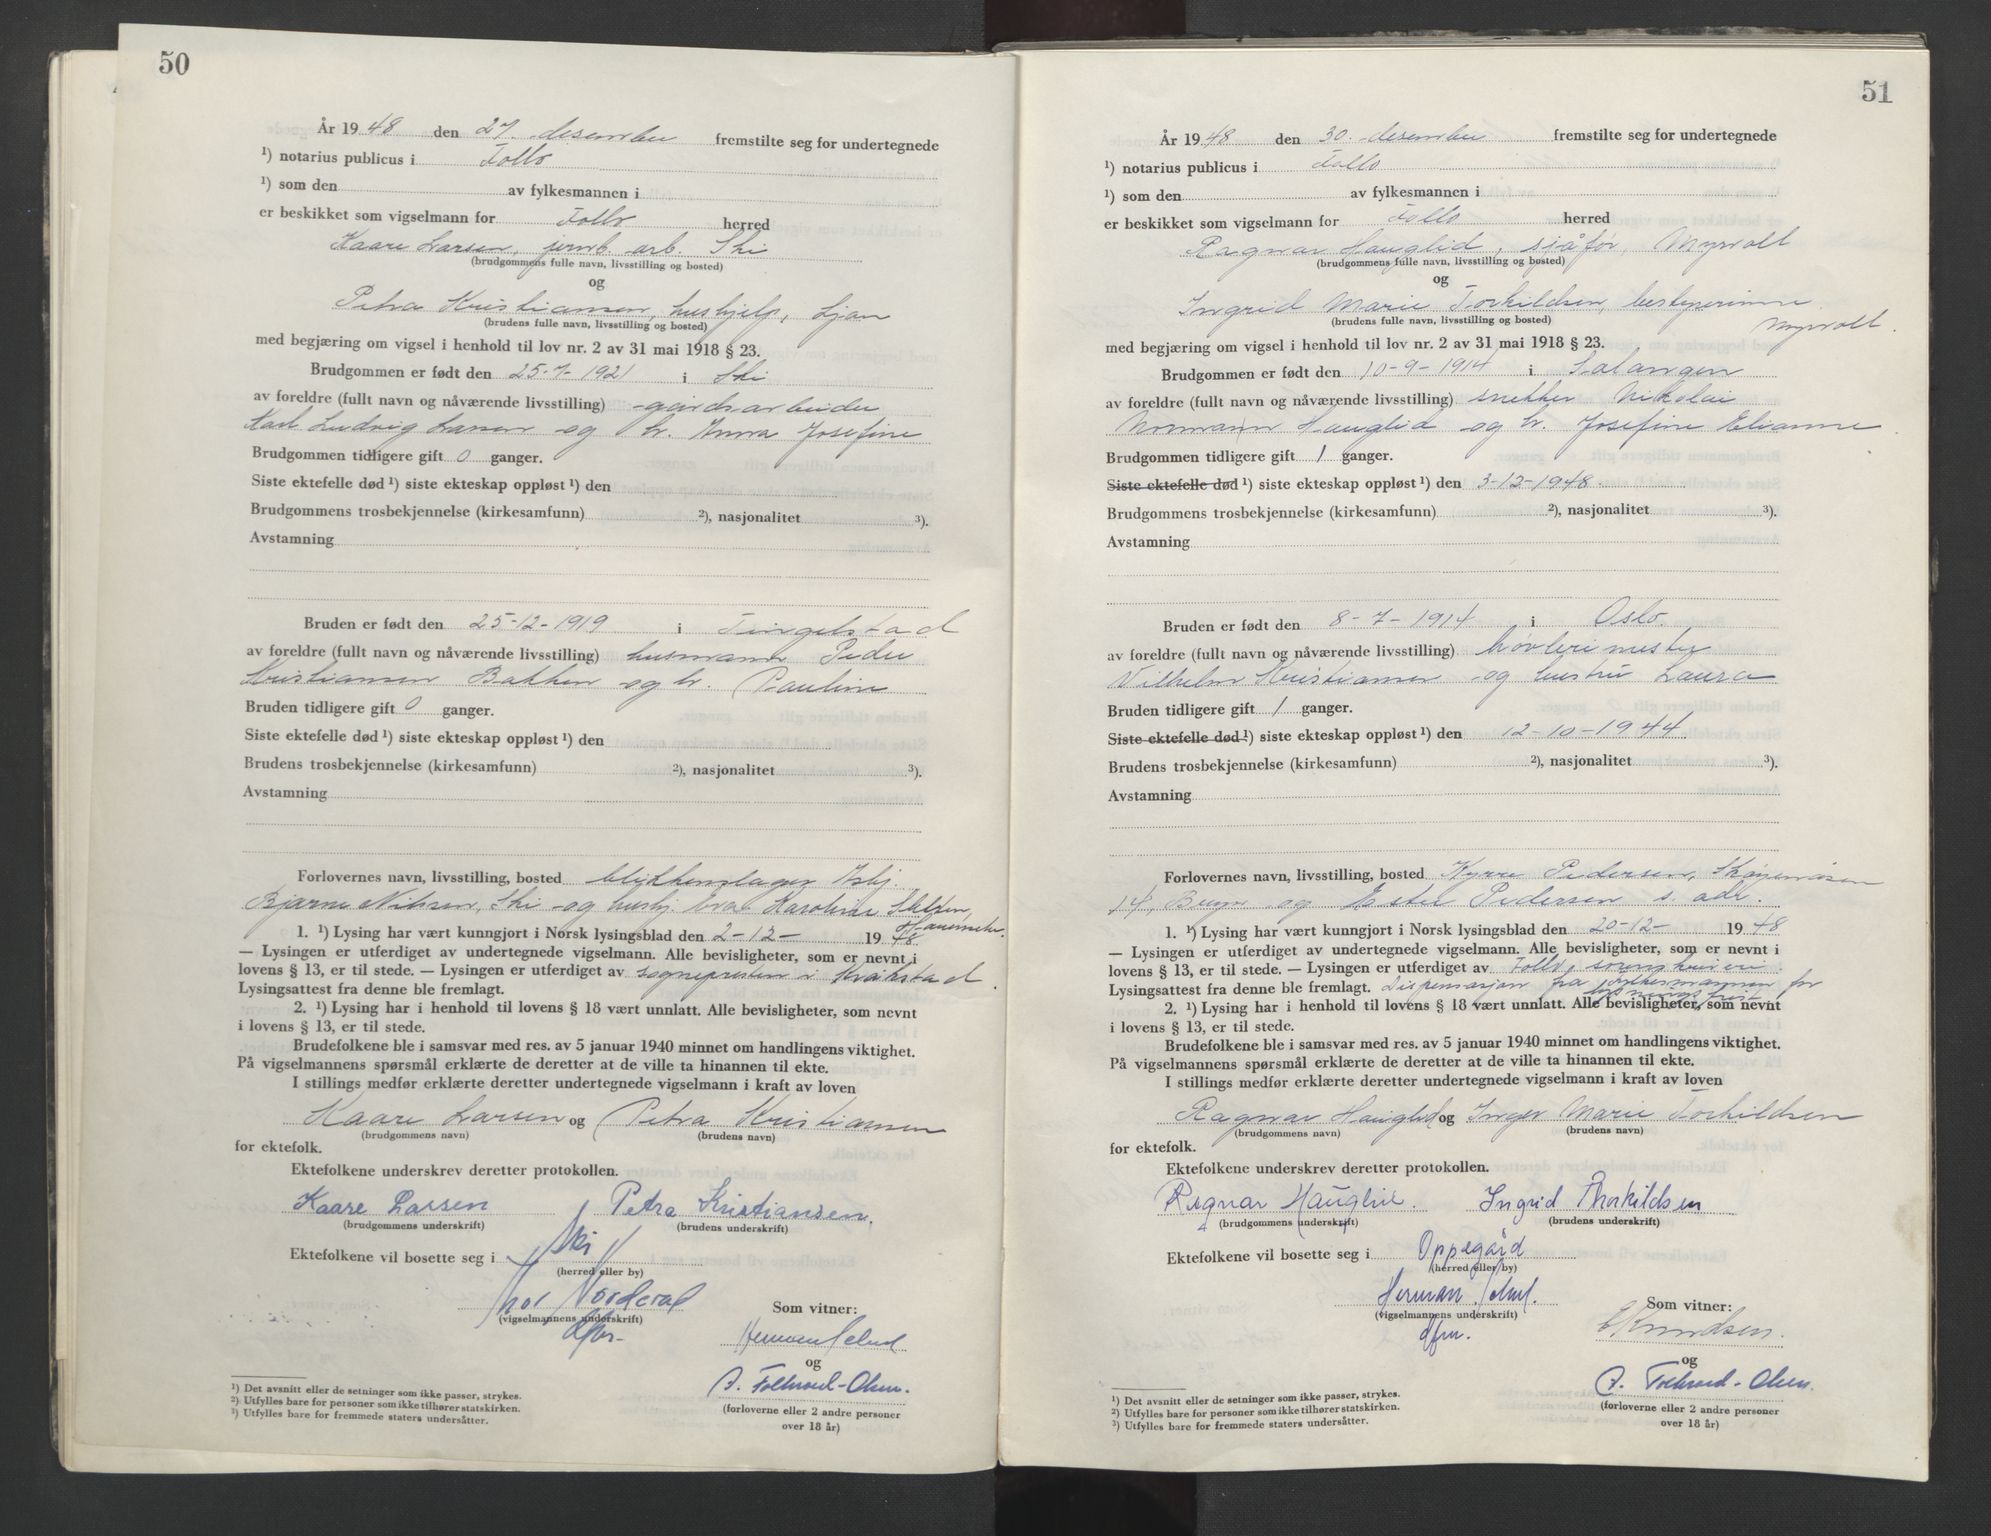 50
År 1948 den 27. desember fremstilte seg for undertegnede
¹) notarius publicus i Follo
¹) som den av fylkesmannen i
er beskikket som vigselmann for Follo herred
Kaare Larsen, jernb. arb. Ski
(brudgommens fulle navn, livsstilling og bosted)
og
Petra Kristiansen, hushjelp, Ljan
(brudens fulle navn, livsstilling og bosted)
med begjæring om vigsel i henhold til lov nr. 2 av 31 mai 1918 § 23.
Brudgommen er født den 25-7-1921 i Ski
av foreldre (fullt navn og nåværende livsstilling) gårdsarbeider
Karl Ludvig Larsen og h. Anna Josefine
Brudgommen tidligere gift 0 ganger.
Siste ektefelle død ¹) siste ekteskap oppløst ¹) den
Brudgommens trosbekjennelse (kirkesamfunn) ²), nasjonalitet ³).
Avstamning
Bruden er født den 25-12-1919 i Tingelstad
av foreldre (fullt navn og nåværende livsstilling) husmann Peder
Kristiansen Bakken og h. Pauline
Bruden tidligere gift 0 ganger.
Siste ektefelle død ¹) siste ekteskap oppløst ¹) den
Brudens trosbekjennelse (kirkesamfunn) ²), nasjonalitet ³).
Avstamning
Forlovernes navn, livsstilling, bosted blikkenslager Asbj.
Bjarne Nilsen, Ski og hushj. Eva Karoline
1. ¹) Lysing har vært kunngjort i Norsk lysingsblad den 2-12- 1948.
— Lysingen er utferdiget av undertegnede vigselmann. Alle bevisligheter, som er nevnt i
lovens § 13, er til stede. — Lysingen er utferdiget av sognepresten i Kråkstad.
Lysingsattest fra denne ble fremlagt.
2. ¹) Lysing har i henhold til lovens § 18 vært unnlatt. Alle bevisligheter, som nevnt
i lovens § 13, er til stede.
Brudefolkene ble i samsvar med res. av 5 januar 1940 minnet om handlingens viktighet.
På vigselmannens spørsmål erklærte de deretter at de ville ta hinannen til ekte.
I stillings medfør erklærte deretter undertegnede vigselmann i kraft av loven
Kaare Larsen og Petra Kristiansen
(brudgommens navn) (brudens navn)
for ektefolk.
Ektefolkene underskrev deretter protokollen.
Kaare Larsen Petra Kristiansen.
(brudgommens underskrift) (brudens underskrift)
Ektefolkene vil bosette seg i Ski
(herred eller by)
Thor Norderal
(vigselmannens underskrift)
Som vitner:
og
A. Folkvord-Olsen.
(forloverne eller 2 andre personer
over 18 år)
¹) Det avsnitt eller de setninger som ikke passer, strykes.
²) Utfylles bare for personer som ikke tilhører statskirken.
³) Utfylles bare for fremmede staters undersåtter.
51
År 1948 den 30. desember fremstilte seg for undertegnede
¹) notarius publicus i Follo
¹) som den av fylkesmannen i
er beskikket som vigselmann for Follo herred
Ragnar Hauglid, sjåfør, Myrvoll
(brudgommens fulle navn, livsstilling og bosted)
og
Ingrid Marie Torkildsen, bestyrerinne
Myrvoll.
(brudens fulle navn, livsstilling og bosted)
med begjæring om vigsel i henhold til lov nr. 2 av 31 mai 1918 § 23.
Brudgommen er født den 10-9-1914 i Salangen
av foreldre (fullt navn og nåværende livsstilling) snekker Nikolai
Normann Hauglid og h. Josefine Elianne.
Brudgommen tidligere gift 1 ganger.
Siste ektefelle død ¹) siste ekteskap oppløst ¹) den 3-12-1948.
Brudgommens trosbekjennelse (kirkesamfunn) ²), nasjonalitet ³).
Avstamning
Bruden er født den 8-7-1914 i Oslo
av foreldre (fullt navn og nåværende livsstilling) høvlerimester
Vilhelm Kristiansen og hustru Laura
Bruden tidligere gift 1 ganger.
Siste ektefelle død ¹) siste ekteskap oppløst ¹) den 12-10-1944.
Brudens trosbekjennelse (kirkesamfunn) ²), nasjonalitet ³).
Avstamning
Forlovernes navn, livsstilling, bosted Kyrre Pedersen, Skøyenåsen
14, Bryn og Ester Pedersen s. adr.
1. ¹) Lysing har vært kunngjort i Norsk lysingsblad den 20-12- 1948
— Lysingen er utferdiget av undertegnede vigselmann. Alle bevisligheter, som er nevnt i
lovens § 13, er til stede. — Lysingen er utferdiget av Follo sorenskriveri.
Lysingsattest fra denne ble fremlagt. Dispensasjon fra fylkesmannen for
lysningsfrist
2. ¹) Lysing har i henhold til lovens § 18 vært unnlatt. Alle bevisligheter, som nevnt
i lovens § 13, er til stede.
Brudefolkene ble i samsvar med res. av 5 januar 1940 minnet om handlingens viktighet.
På vigselmannens spørsmål erklærte de deretter at de ville ta hinannen til ekte.
I stillings medfør erklærte deretter undertegnede vigselmann i kraft av loven
Ragnar Hauglid og Inger Marie Torkildsen
(brudgommens navn) (brudens navn)
for ektefolk.
Ektefolkene underskrev deretter protokollen.
Ragnar Hauglid. Ingrid Thorkildsen
(brudgommens underskrift) (brudens underskrift)
Ektefolkene vil bosette seg i Oppegård
(herred eller by)
Herman
(vigselmannens underskrift)
Som vitner:
E Knudsen.
og
A. Folkvord-Olsen.
(forloverne eller 2 andre personer
over 18 år)
¹) Det avsnitt eller de setninger som ikke passer, strykes.
²) Utfylles bare for personer som ikke tilhører statskirken.
³) Utfylles bare for fremmede staters undersåtter.